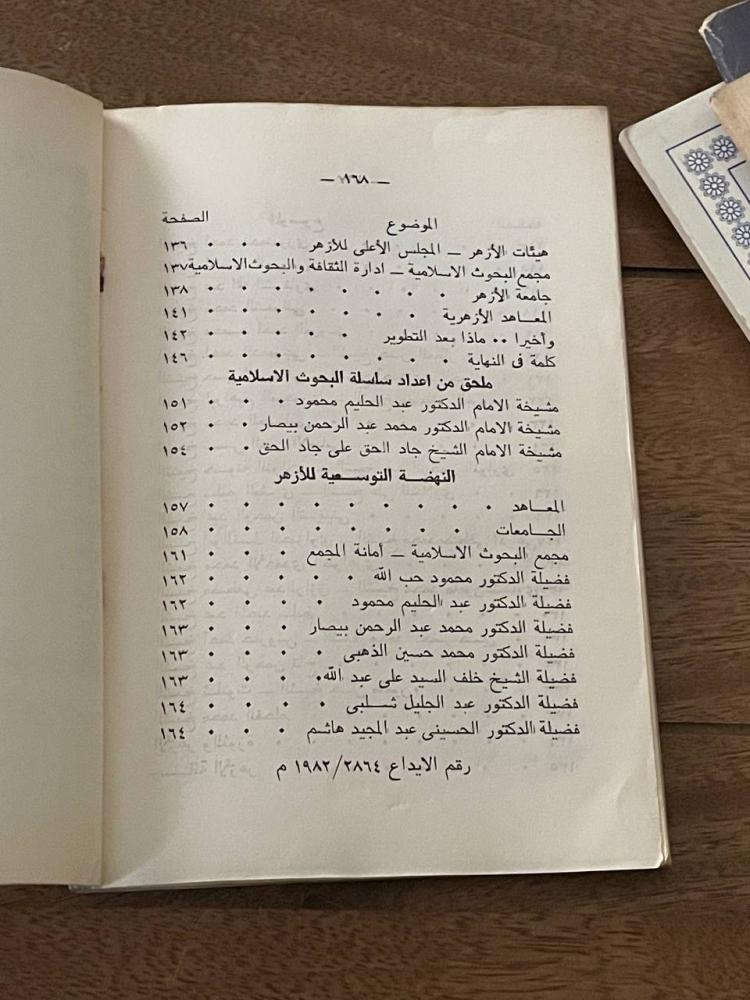 — ١٦٨ —
الموضوع الصفحة
هيئات الأزهر — المجلس الأعلى للأزهر . . . ١٣٦
مجمع البحوث الاسلامية — ادارة الثقافة والبحوث الاسلامية ١٣٧
جامعة الأزهر . . . . . . . . ١٣٨
المعـــاهد الأزهرية . . . . . . . ١٤١
وأخيرا .. ماذا بعد التطوير . . . . . ١٤٢
كلمة فى النهاية . . . . . . . . ١٤٦
ملحق من اعداد ساسلة البحوث الاسلامية
مشيخة الامام الدكتور عبد الحليم محمود . . . ١٥١
مشيخة الامام الدكتور محمد عبد الرحمن بيصار . . ١٥٢
مشيخة الامام الشيخ جاد الحق على جاد الحق . . ١٥٤
النهضـــة التوســـعية للأزهر
المعـــاهد . . . . . . . . ١٥٧
الجـــامعات . . . . . . . . ١٥٨
مجمع البحوث الاسلامية — أمانة المجمع . . . ١٦١
فضيلة الدكتور محمود حب الله . . . . . ١٦٢
فضيلة الدكتور عبد الحليم محمود . . . . ١٦٢
فضيلة الدكتور محمد عبد الرحمن بيصار . . . ١٦٣
فضيلة الدكتور محمد حسين الذهبى . . . . ١٦٣
فضيلة الشيخ خلف السيد على عبد الله . . . . ١٦٣
فضيلة الدكتور عبد الجليل شـــلبى . . . . ١٦٤
فضيلة الدكتور الحسينى عبد المجيد هاشم . . . ١٦٤
رقم الايداع ١٩٨٢/٢٨٦٤ م